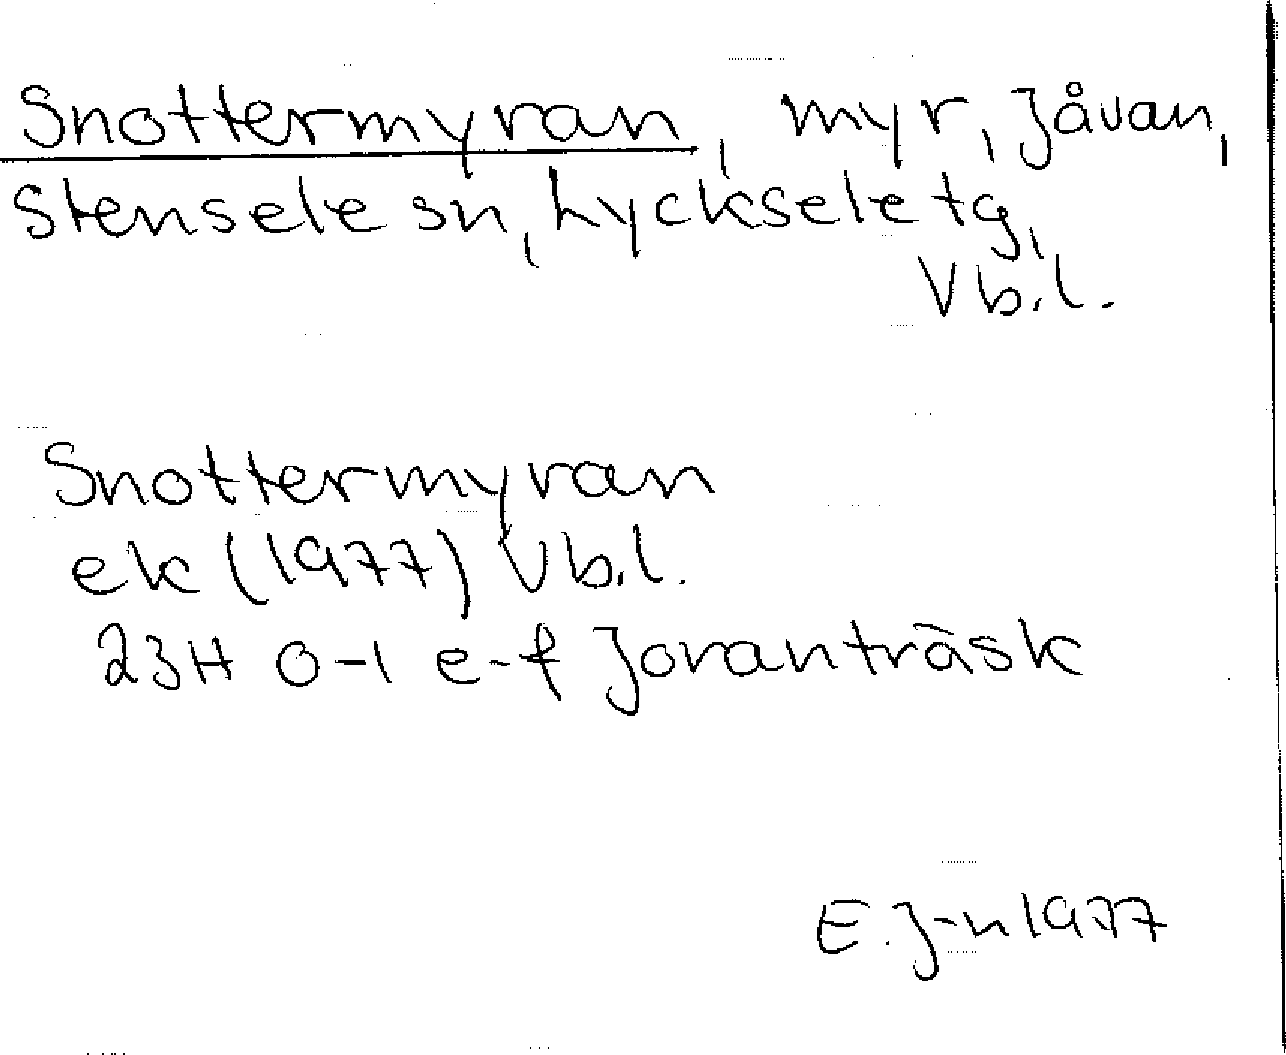 Snottermyran, myr, Jåvan,
Stensele sn, Lycksele tg,
Vb.l.
Snottermyran
ek (1977) Vb.l.
23H 0-1 e-f Joranträsk
E.J-n 1977